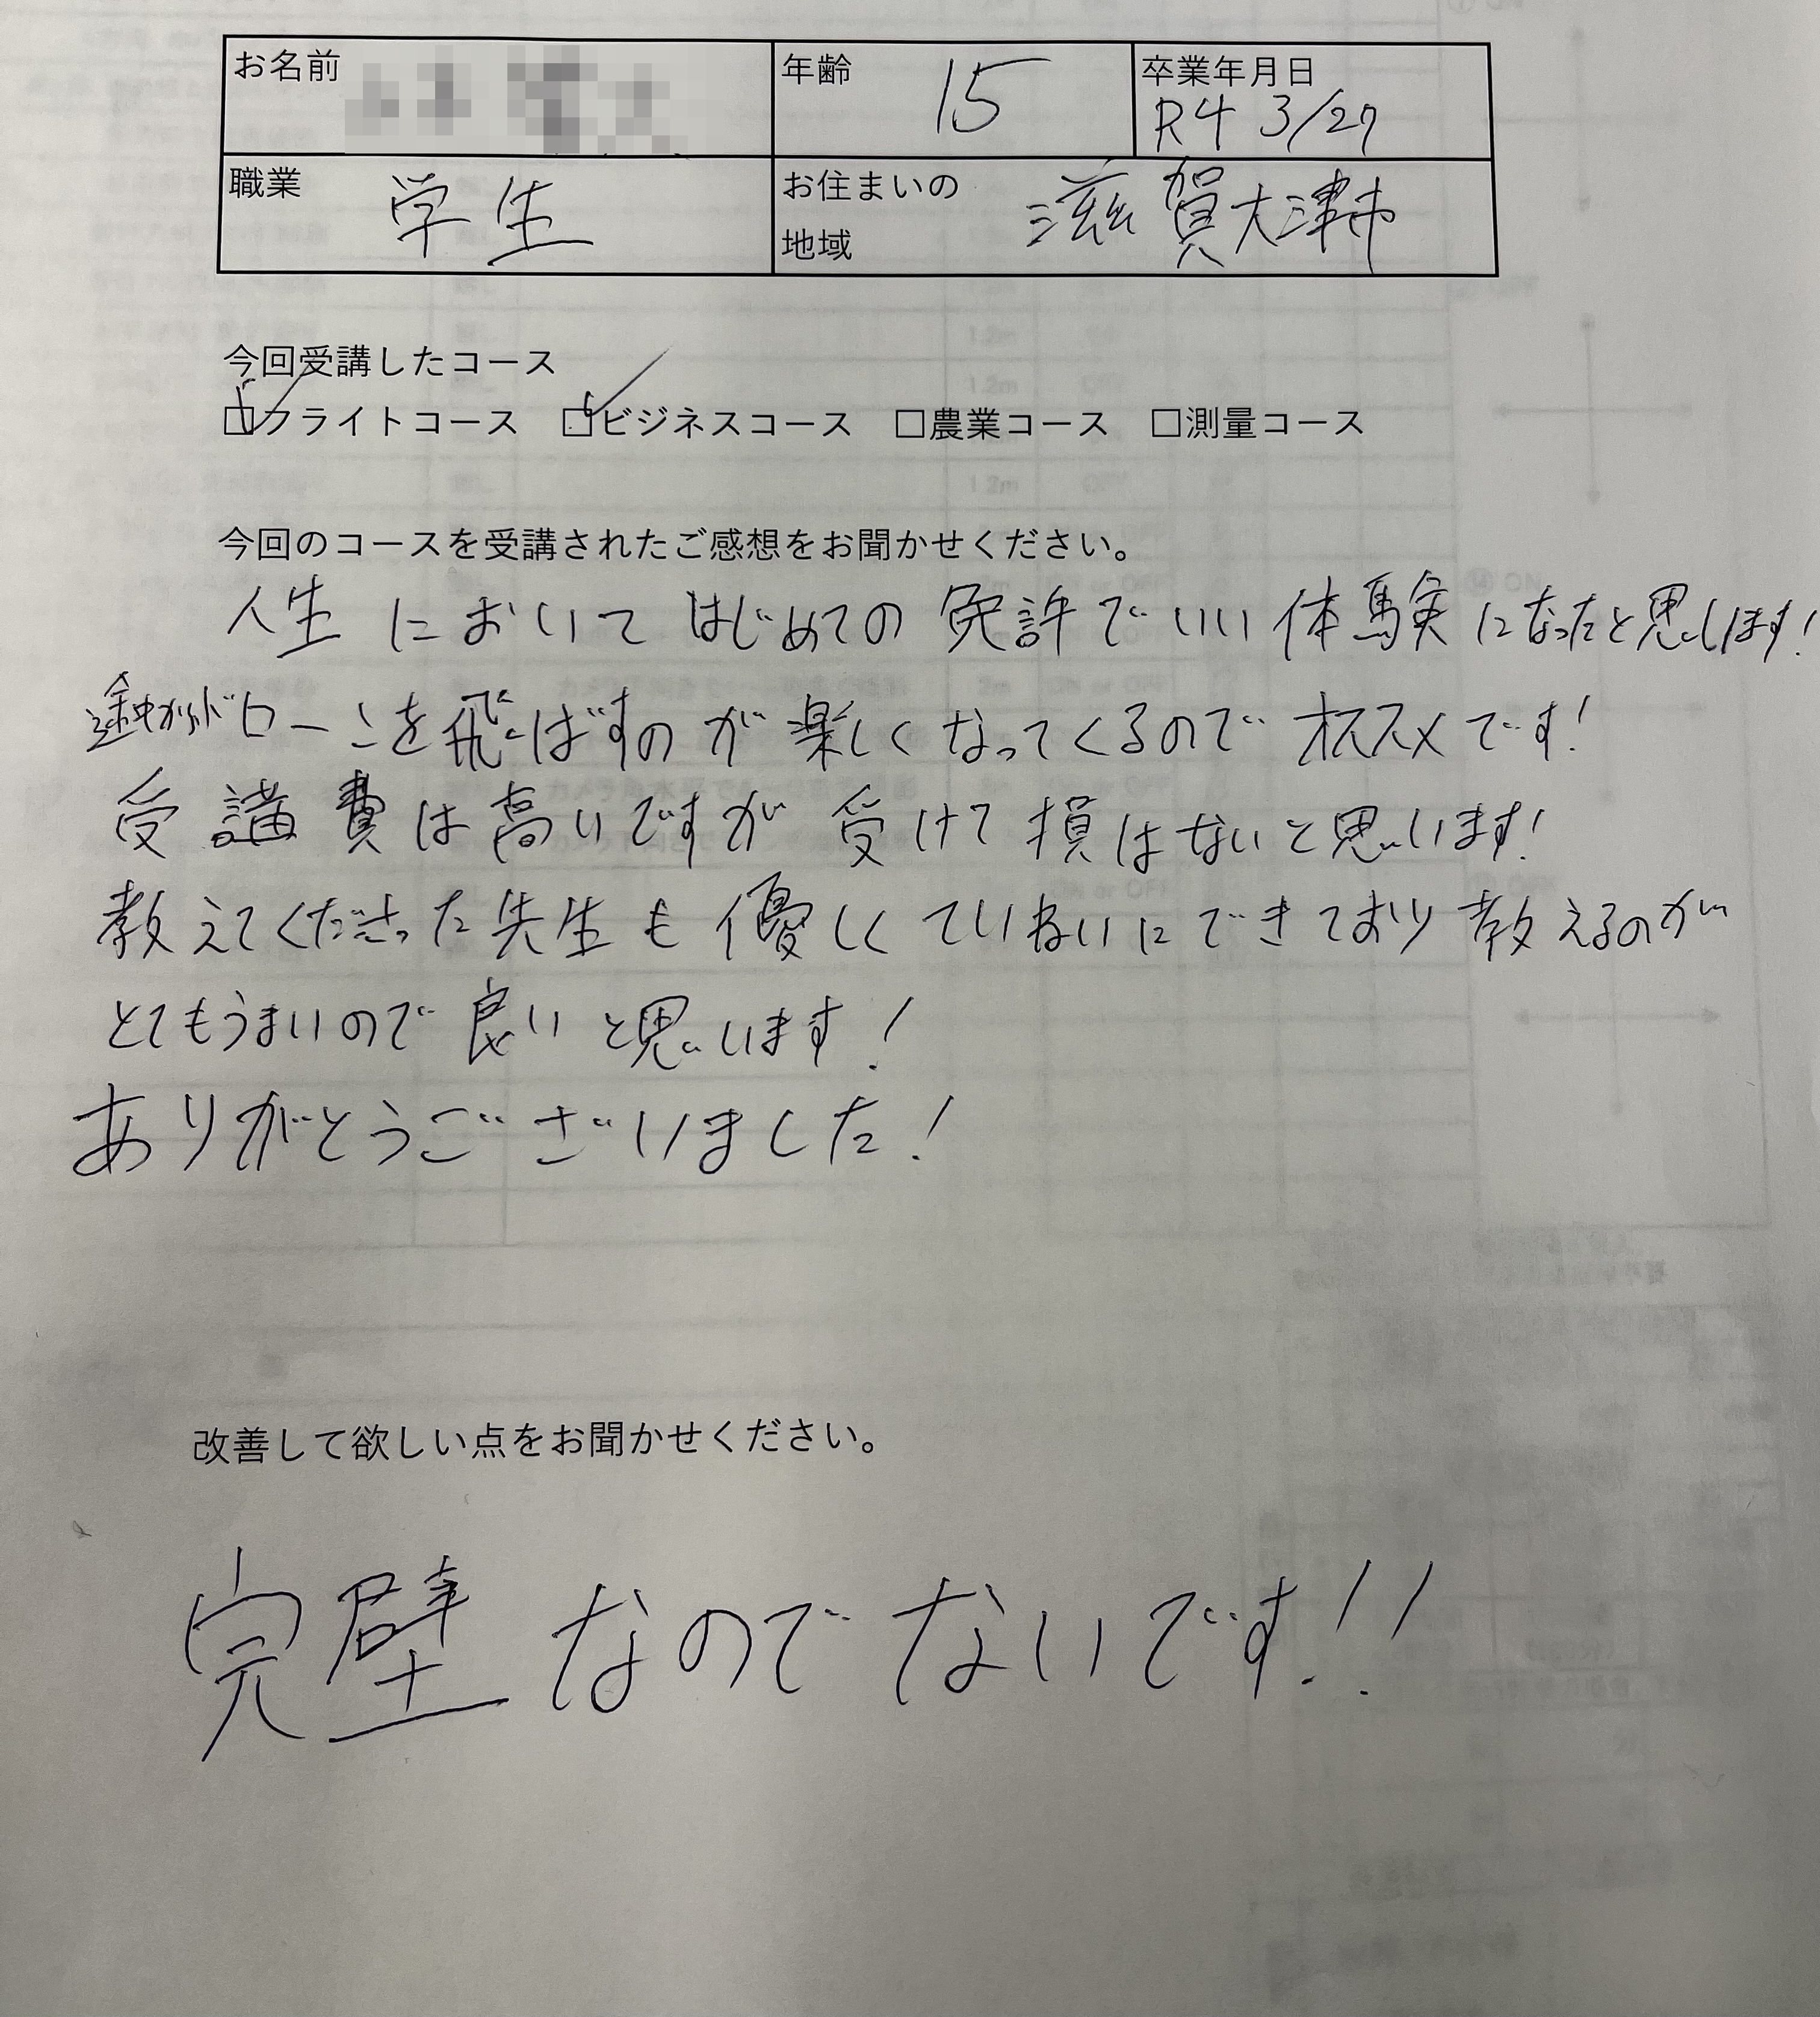 お名前
年齢 15
卒業年月日 R4 3/27
職業 学生
お住まいの地域 滋賀大津市
今回受講したコース
☑フライトコース ☑ビジネスコース □農業コース □測量コース
今回のコースを受講されたご感想をお聞かせください。
人生においてはじめての免許でいい体験になったと思います!
途中からドローンを飛ばすのが楽しくなってくるのでオススメです!
受講費は高いですが受けて損はないと思います!
教えてくださった先生も優しくていねいにできており教えるのが
とてもうまいので良いと思います!
ありがとうございました!
改善して欲しい点をお聞かせください。
完璧なのでないです!!